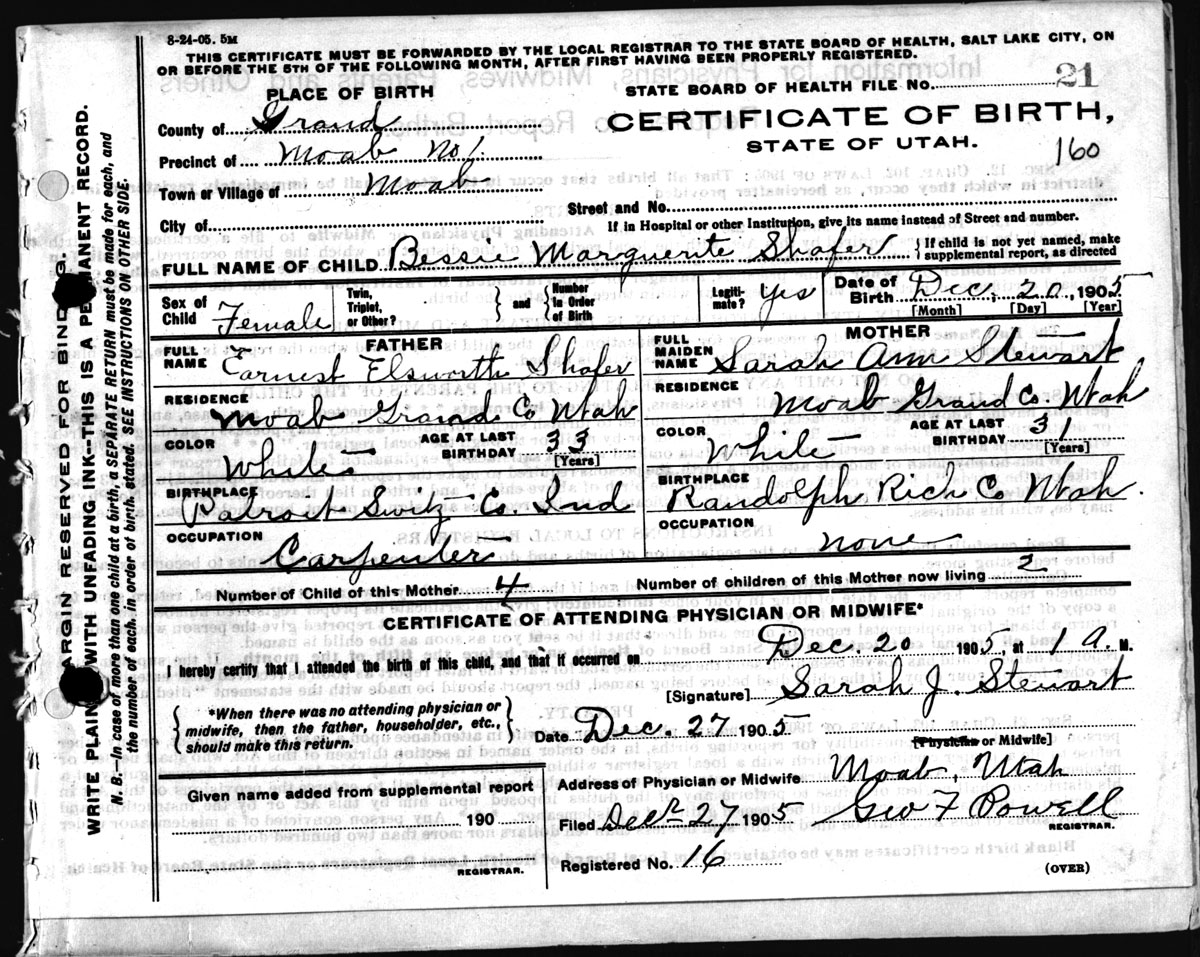 8-24-05. 5M
THIS CERTIFICATE MUST BE FORWARDED BY THE LOCAL REGISTRAR TO THE STATE BOARD OF HEALTH, SALT LAKE CITY, ON
OR BEFORE THE 5TH OF THE FOLLOWING MONTH, AFTER FIRST HAVING BEEN PROPERLY REGISTERED.
PLACE OF BIRTH
STATE BOARD OF HEALTH FILE No. 21
County of Grand
CERTIFICATE OF BIRTH,
STATE OF UTAH.
160
Precinct of Moab No 1.
Town or Village of Moab
Street and No.
City of
If in Hospital or other Institution, give its name instead of Street and number.
FULL NAME OF CHILD Bessie Marguerite Shafer {If child is not yet named, make supplemental report, as directed
Sex of Child Female
Twin, Triplet, or Other? } and { Number in Order of Birth
Legitimate? Yes
Date of Birth Dec. 20, 1905
[Month] [Day] [Year]
FATHER
FULL NAME Earnest Elsworth Shafer
RESIDENCE
Moab Grand Co Utah
COLOR White
AGE AT LAST BIRTHDAY 33
[Years]
BIRTHPLACE
Patroit Switz Co. Ind
OCCUPATION
Carpenter
MOTHER
FULL MAIDEN NAME Sarah Ann Stewart
RESIDENCE
Moab Grand Co. Utah
COLOR White
AGE AT LAST BIRTHDAY 31
(Years)
BIRTHPLACE
Randolph Rich Co Utah.
OCCUPATION
none
Number of Child of this Mother 4
Number of children of this Mother now living 2
CERTIFICATE OF ATTENDING PHYSICIAN OR MIDWIFE*
I hereby certify that I attended the birth of this child, and that it occurred on Dec. 20 1905, at 1 A. M.
[Signature] Sarah J. Stewart
{*When there was no attending physician or midwife, then the father, householder, etc., should make this return.}
Date Dec. 27 1905
[Physician or Midwife]
Given name added from supplemental report
190
REGISTRAR.
Address of Physician or Midwife Moab, Utah
Filed Dec 27 1905 Geo F Powell
REGISTRAR.
Registered No. 16
(OVER)
ARGIN RESERVED FOR BIND G.
WRITE PLAIN WITH UNFADING INK--THIS IS A PERMANENT RECORD.
N. B.--In case of more than one child at a birth, a SEPARATE RETURN must be made for each, and
the number of each, in order of birth, stated. SEE INSTRUCTIONS ON OTHER SIDE.